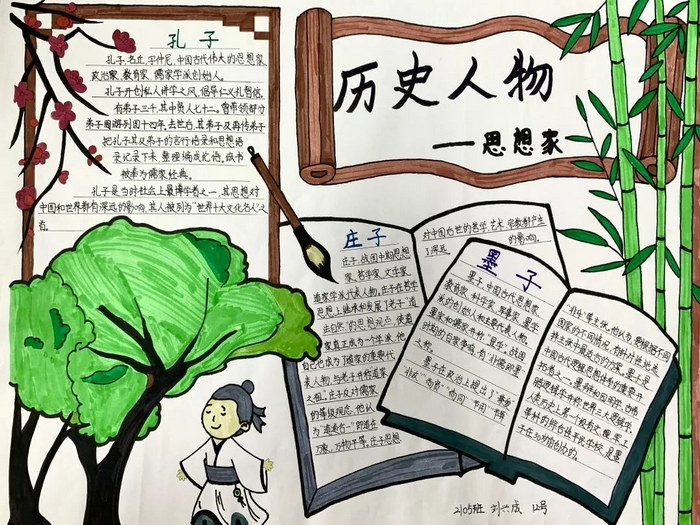 历史人物
——思想家
孔子
孔子,名丘,字仲尼,中国古代伟大的思想家,
政治家、教育家,儒家学派创始人。
孔子开创私人讲学之风,倡导仁义礼智信,
有弟子三千,其中贤人七十二。曾带领部分
弟子周游列国十四年,去世后,其弟子及再传弟子
把孔子其及弟子的言行语录和思想语
录记录下来,整理编成论语,该书
被奉为儒家经典。
孔子是当时社会上最博学者之一,其思想对
中国和世界都有深远的影响,其人被列为“世界十大文化名人”之
首。
庄子
庄子,战国中期思想
家、哲学家、文学家
道家学派代表人物,庄子在哲学
思想上继承和发展了老子“道
法自然”的思想观点,使道
家真正成为一个学派,他
自己也成为了道家的重要代
表人物,与老子并称道家
之祖。庄子反对儒家
的等级观念,他认
为“道通为一”即道在
万废,万物平等。庄子思想
对中国后世的哲学、艺术、宗教都产生
了深远的影响。
墨子
墨子,中国古代思想家、
教育家、科学家、军事家,墨学
派的创始人和主要代表人物,
墨家和儒家并称“显学”,战国
时期的百家争鸣,有“非儒即墨”
之称。
墨子在政治上提出了“兼爱”
“非攻”“尚贤”“尚同”“节用”“节葬”
“非乐”等主张,他认为,要根据不同
国家的不同情况,有针对性地选
择主张中最适合的方案。墨子是
中国古代逻辑思想体系的重要开
拓者之一,墨辩和因明学、古希
腊逻辑学并称世界三大逻辑学,
人类历史上第一个设有文、理、军、工
等科的综合性平民学校,是墨
子在30岁前创办的。
2105班 刘 12号